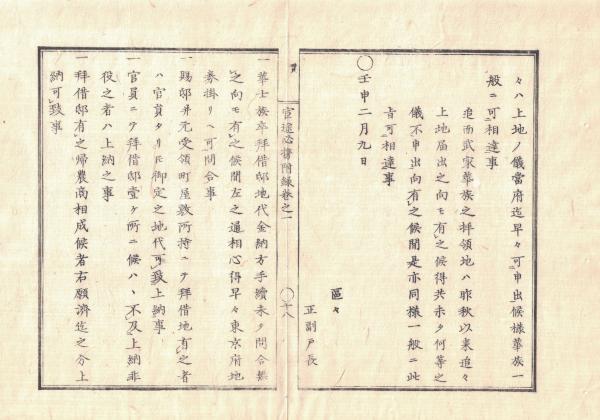 々ハ上地ノ儀當府迄早々可申出候様華族一
般ニ可相達事
追而武家華族之拝領地ハ昨秋以来追々
上地届出之向モ有之候得共未タ何等之
儀不申出向有之候間是亦同様一般ニ此
旨可相達事
〇壬申二月九日
區々
正副戸長
官途必携附録巻之一
〇十八
一華士族卒拝借邸地代金納方手續未タ問合無
之向モ有之候間左之通相心得早々東京府地
券掛リヘ可問合事
一賜邸并元受領町屋敷所持ニテ拝借地有之者
ハ官員タリ𪜈御定之地代可致上納事
一官員ニテ拝借邸壹ケ所ニ候ハヽ不及上納非
役之者ハ上納之事
一拝借邸有之帰農商相成候者右願濟迄之分上
納可致事